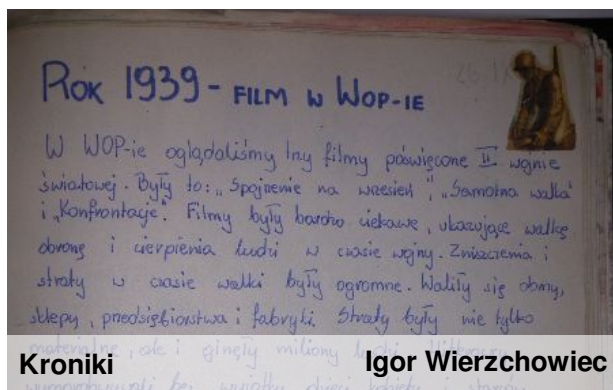 ROK 1939 - FILM W WOP-IE
W WOP-ie oglądaliśmy trzy filmy poświęcone II wojnie
światowej. Były to: „Spojrzenie na wrzesień", „Samotna walka"
i „Konfrontacje". Filmy były bardzo ciekawe, ukazujące walkę
obronę i cierpienia ludzi w czasie wojny. Zniszczenia i
straty w czasie walki były ogromne. Waliły się domy,
sklepy, przedsiębiorstwa i fabryki. Straty były nie tylko
materialne, ale i ginęły miliony ludzi.
Kroniki
Igor Wierzchowiec